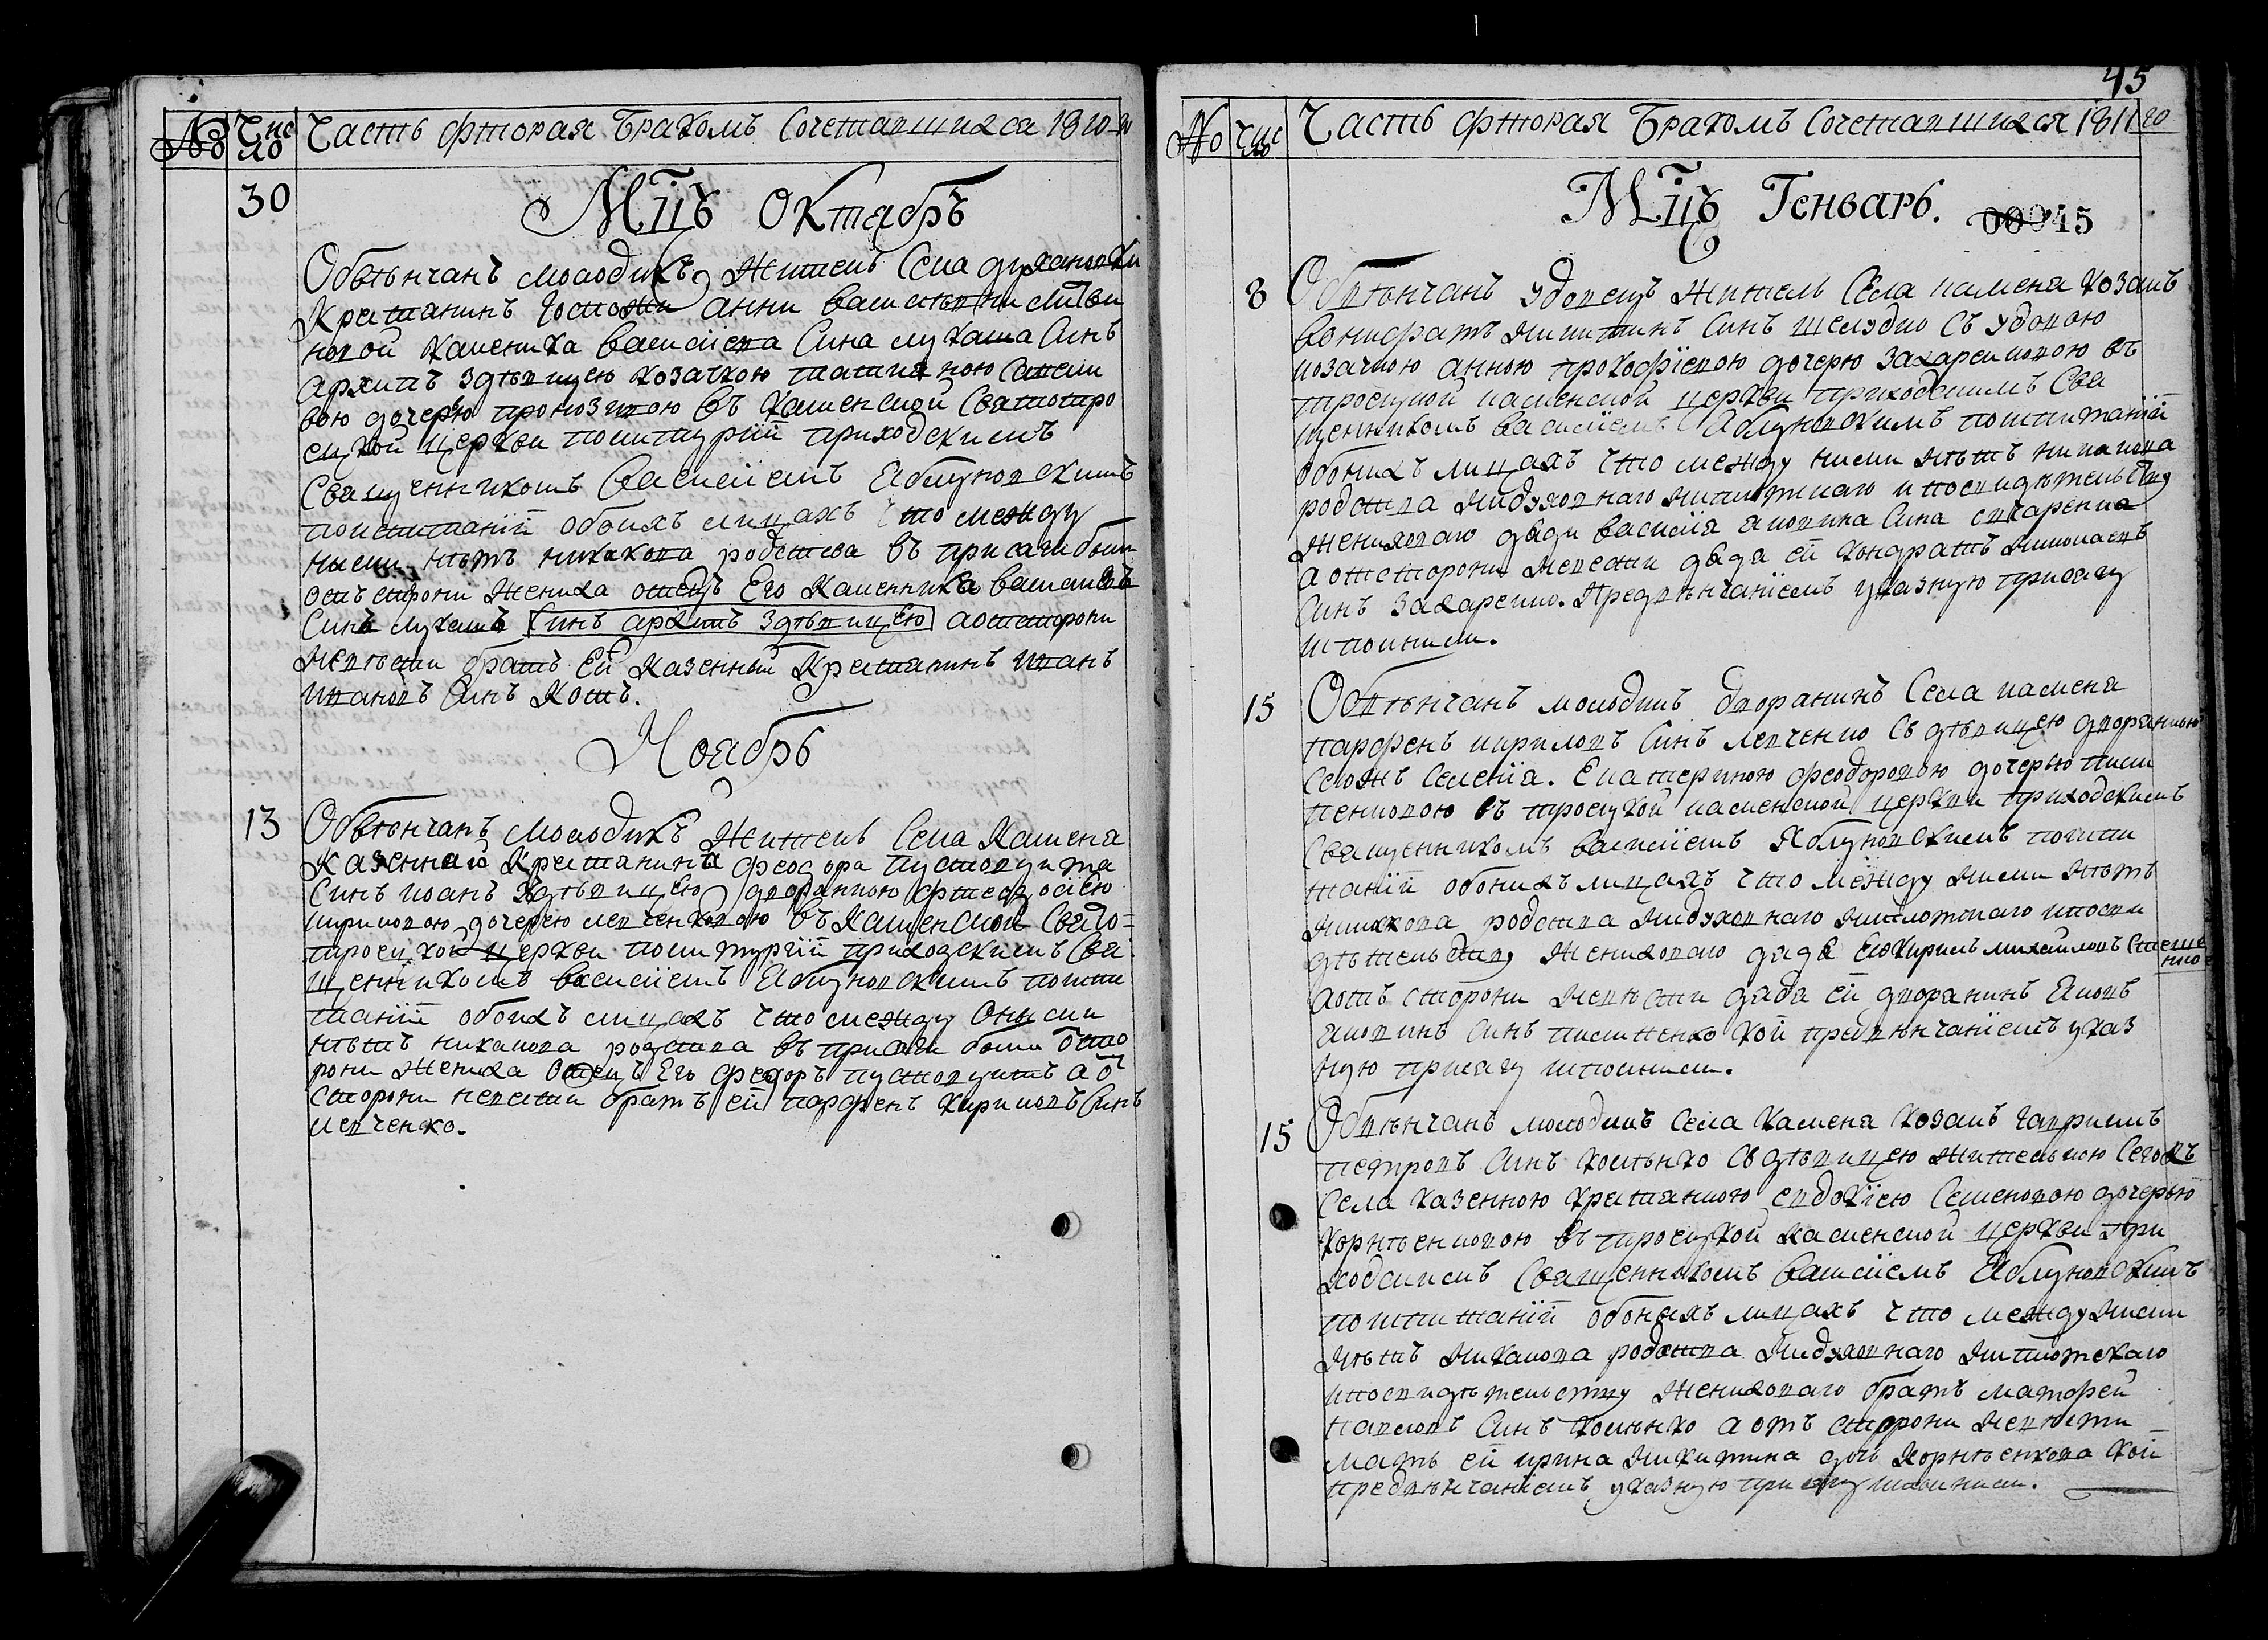 № Число Часть фторая Бракомъ Сочетавшихся 1810 го
30
Мцъ Октабръ
Обвѣнчанъ молодикъ житель Села духановки
Крестянинъ Госпожи анни василевни
новой каменика василиева Сина лукаша Синъ
архипъ здѣвицею козачкою татияною
вою дочерю въ каменской Святотро
ецкой церкви политургіи приходскимъ
Священникомъ василіемъ Яблуновскимъ
поиспитаніи обоихъ лицахъ что между
ными нѣтъ никакова родства въ присаги били
отъ сторони жениха отецъ Его каменника василиевъ
Синъ лукашъ Синъ архипъ здѣвицею аотсторони
невѣсти братъ Ей казенный Крестянинъ иванъ
ивановъ Синъ Котъ.
Ноабръ
13
Обвѣнчанъ молодикъ житель Села Каменя
Казеннаго Крестянина феодора Пустовита
Синъ иоанъ здѣвицею дворянкою фтеодосіею
кириловою дочерею левченковою въ Каменской Свято=
троецкой церкви политургіи приходскимъ Свя
щенникомъ василіемъ Яблуновскимъ поиспи
таніи обоихъ лицахъ что между Оными
нѣтъ никакова родства въ присаги били ѿсто
рони жениха Отецъ Его федоръ пустовитъ а ѿ
Сторони невести братъ ей парфенъ Кириловъ Синъ
левченко.
45
№ Число Часть фторая Бракомъ Сочетавшихся 1811 го
Мцъ Генварь.
00045
8
Обвѣнчанъ удовецъ житель Села каменя козакъ
вонифратъ никитинъ Синъ шелудко Съ удовою
козачкою анною прокофіевою дочерю захаренковою въ
троецкой каменской церкви приходскимъ Свя
щенникомъ василіемъ Яблуновскимъ поиспитаніи
обоникъ лицахъ что между ними нѣтъ никакова
родства нидуховнаго ниплотскаго и посвидѣтельству
жениховаго дяди василія яковина Сина
аотсторони невести дядя ей кондратъ николаевъ
Синъ захаренко. Предвѣнчаніемъ указную присагу
исполнили.
15
Обвѣнчанъ молодикъ дворанинъ Села каменя
парфенъ кириловъ Синъ левченко Съ дѣвицею дворянкою
Сегожъ Селенія. Екатериною феодоровою дочерью писи
пенковою въ троецкой каменской церкви приходскимъ
Священникомъ василіемъ Яблуновскимъ поиспи
таніи обоникъ лицахъ что между ними нѣтъ
никакова родства нидуховнаго ниплотскаго ипосви
дѣтельству жениховаго дядѣ Его кирилъ михайловъ
аотъ сторони невѣсти дядя ей дворанинъ Яковъ
яковинъ Синъ писипенко кои предвѣнчаніемъ указ
ную присагу исполнили.
15
Обвѣнчанъ молодикъ Села Каменя козакъ гаврилъ
петровъ Синъ Съ дѣвицею жителькою Сегожъ
Села казенною крестянкою евдокіею Семеновою дочерью
корнѣенковою въ троецкой каменской церкви при
ходскимъ Священникомъ василіемъ Яблуновскимъ
поиспитаніи обоныхъ лицахъ что между ними
нѣтъ никакова родства нидуховнаго ниплотскаго
ипосвидѣтельству жениховаго братъ матфей
павловъ Синъ а отъ сторони невѣсти
мать ей ирина никитина дочь корнѣенкова кои
предвѣнчаніемъ указную присагу исполнили.